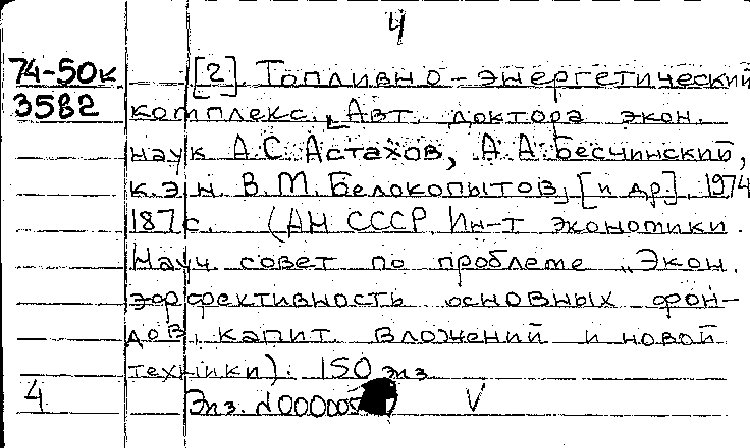 4
74-50к [2]. Топливно-энергетический
3582 комплекс. [Авт. доктора экон.
наук А.С. Астахов, А.А. Бесчинский,
к.э.н. В.М. Белокопытов, [и др.]. 1974
187 с. (АН СССР. Ин-т экономики.
Науч. совет по проблеме „Экон.
эффективность основных фон-
дов, капит. вложений и новой
техники). 150 экз.
4 Экз. №000005 V